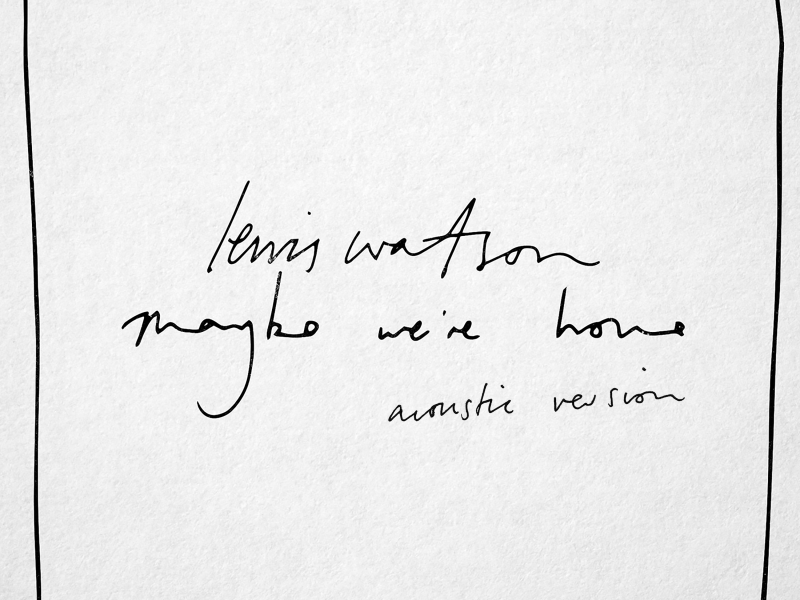 lewis watson
maybe we're home
acoustic version